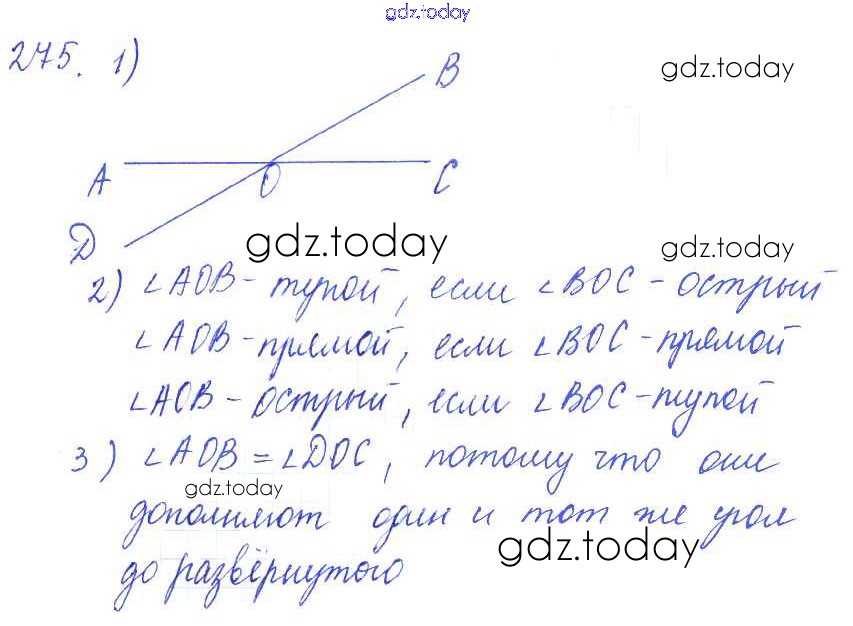 gdz.today
275. 1)
B
gdz.today
A O C
D
gdz.today gdz.today
2) ∠AOB - тупой, если ∠BOC - острый
∠AOB - прямой, если ∠BOC - прямой
∠AOB - острый, если ∠BOC - тупой
3) ∠AOB = ∠DOC, потому что они
gdz.today
дополняют один и тот же угол
gdz.today
до развёрнутого